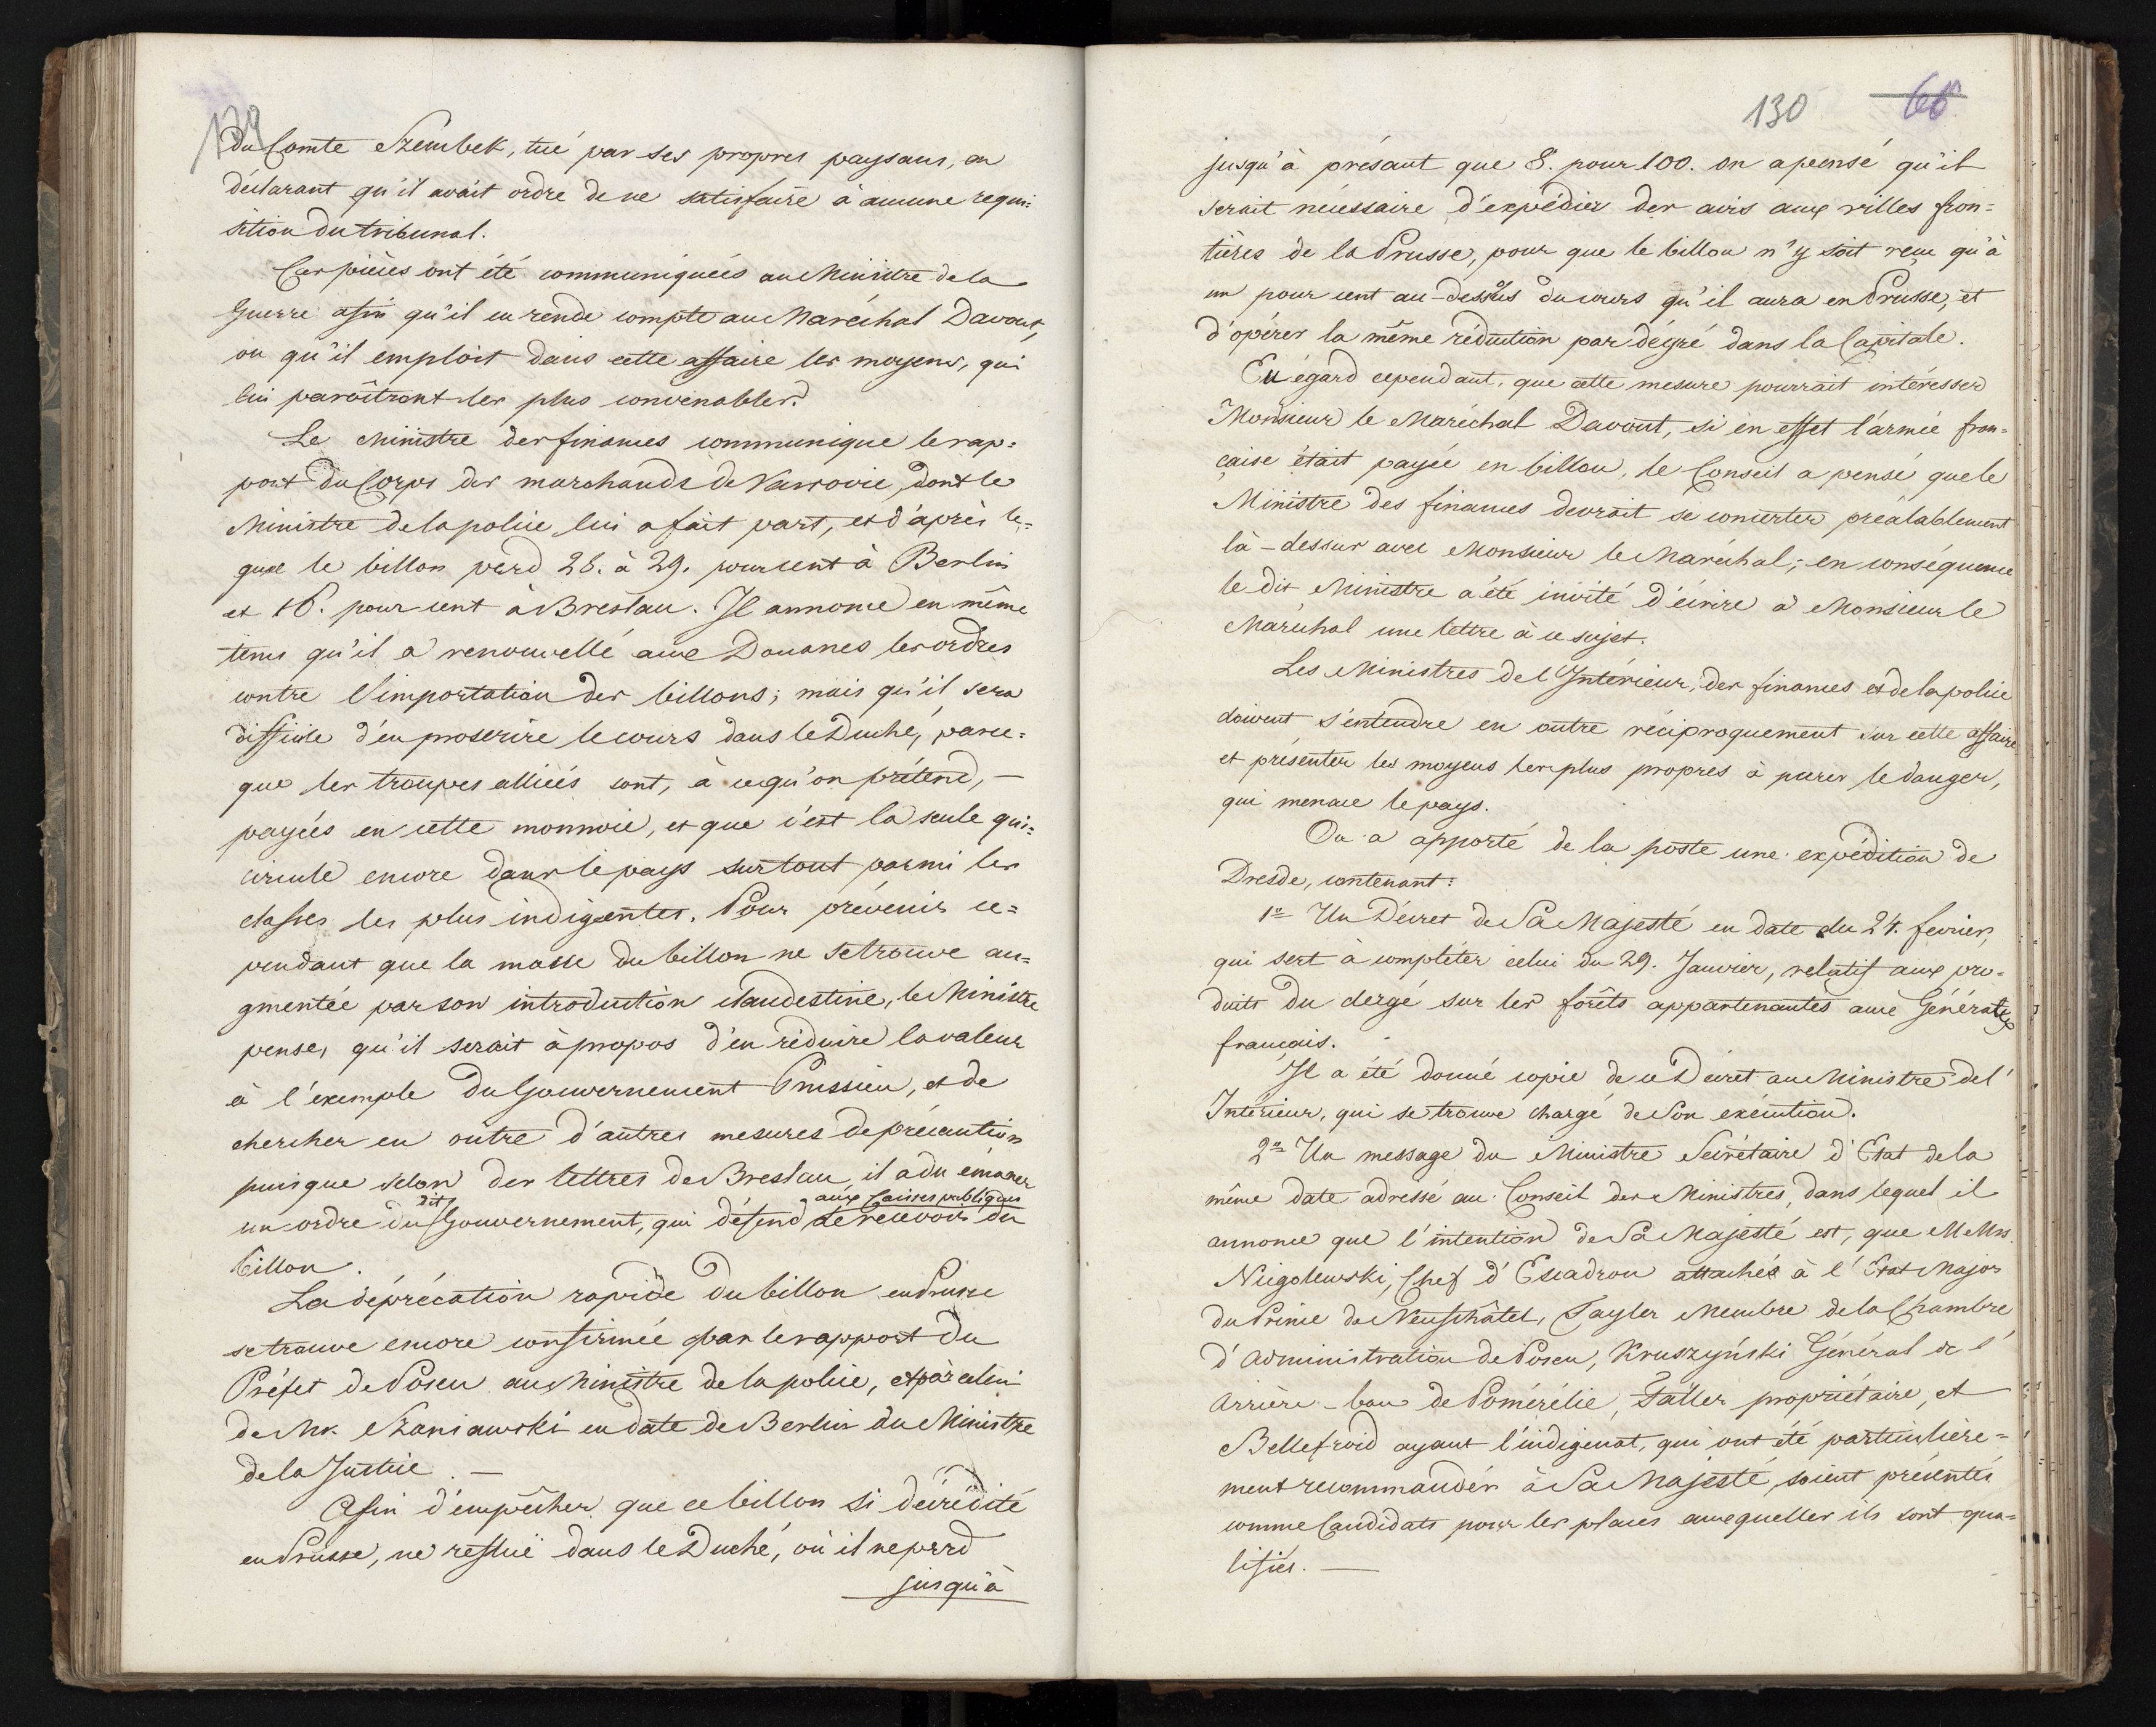 129
du Comte Szembek, tué par ses propres paysans, en
déclarant qu'il avait ordre de ne satisfaire à aucune requi:
sition du tribunal.
Ces pièces ont été communiquées au Ministre de la
Guerre afin qu'il en rende compte au Maréchal Davout,
ou qu'il emploit dans cette affaire les moyens, qui
lui paroîtront les plus convenables.
Le Ministre des finances communique le rap=
port du Corps des marchands de Varsovie, dont le
Ministre de la police lui a fait part, et d'après le=
quel le billon perd 28. à 29. pour cent à Berlin
et 16. pour cent à Breslau. Il annonce en même
tems qu'il a renouvellé aux Douanes les ordres
contre l'importation des billons; mais qu'il sera
difficile d'en proscrire le cours dans le Duché, parce=
que les troupes alliées sont, à ce qu'on prétend, —
payées en cette monnoie, et que c'est la seule qui=
circule encore dans le pays surtout parmi les
classes les plus indigentes. Pour prévenir ce=
pendant que la masse du billon ne se trouve au=
gmentée par son introduction clandestine, le Ministre
pense, qu'il serait à propos d'en réduire la valeur
à l'exemple du Gouvernement Prussien, et de
chercher en outre d'autres mesures de précaution
puisque selon des lettres de Breslau, il a du émaner
dit aux Caisses publiques
un ordre du Gouvernement, qui défend de recevoir du
billon.
La déprécation rapide du billon en Prusse
se trouve encore confirmée par le rapport du
Préfet de Posen au Ministre de la police, et par celui
de Mr. Szaniawski en date de Berlin au Ministre
de la Justice. —
Afin d'empêcher que ce billon si décrédité
en Prusse, ne reflue dans le Duché, où il ne perd
jusqu'à
130 66
jusqu'à présant que 8. pour 100. on a pensé qu'il
serait nécessaire d'expédier des avis aux villes fron=
tières de la Prusse, pour que le billon n'y soit reçu qu'à
un pour cent au-dessus du cours qu'il aura en Prusse, et
d'opérer la même réduction par dégré dans la Capitale.
Eu égard cependant, que cette mesure pourrait intéresser
Monsieur le Maréchal Davout, si en effet l'armée fran=
çaise était payée en billon, le Conseil a pensé que le
Ministre des finances devrait se concerter préalablement
là-dessus avec Monsieur le Maréchal; en conséquence
le dit Ministre a été invité d'écrire à Monsieur le
Maréchal une lettre à ce sujet.
Les Ministres de l'Intérieur, des finances et de la police
doivent s'entendre en outre réciproquement sur cette affaire
et présenter les moyens les plus propres à parer le danger,
qui menace le pays.
On a apporté de la poste une expédition de
Dresde, contenant:
1o Un Décret de Sa Majesté en date du 24. fevrier,
qui sert à compléter celui du 29. Janvier, relatif aux pro=
duits du clergé sur les forêts appartenantes aux Généraux
français.
Il a été donné copie de ce Décret au Ministre de l'
Intérieur, qui se trouve chargé de Son exécution.
2o Un message du Ministre Secrétaire d'Etat de la
même date adressé au Conseil des Ministres, dans lequel il
annonce que l'intention de Sa Majesté est, que MMrs.
Niegolewski, Chef d'Escadron attaché à l'Etat Major
du Prince de Neufchâtel, Tayler Membre de la Chambre
d'Administration de Posen, Kruszyński Général de l'
Arrière-ban de Pomérélie, Faller propriétaire, et
Bellefroid ayant l'indigenat, qui ont été particulière=
ment recommandés à Sa Majesté, soient présentés
comme Candidats pour les places auxquelles ils sont qua=
lifiés. —